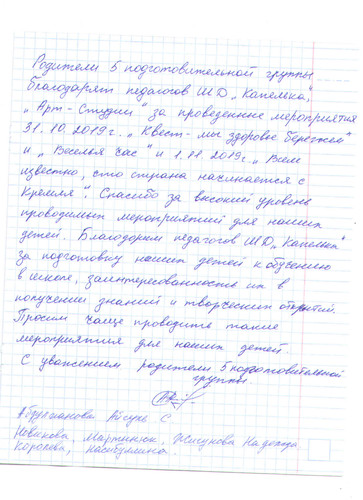 Родители 5 подготовительной группы
благодарят педагогов ШД „Капелька",
„Арт-Студии" за проведенные мероприятия
31.10.2019г. „Квест-мы здоровье бережем"
и „Веселья час" и 1.11.2019г. „Всем
известно, что страна начинается с
Кремля". Спасибо за высокий уровень
проводимых мероприятий для наших
детей. Благодарим педагогов ШД „Капелька"
за подготовку наших детей к обучению
в школе, заинтересованность их в
получении знаний и творческих открытий.
Просим чаще проводить такие
мероприятия для наших детей.
С уважением родители 5 подготовительной
группы.
С
Новикова, Мартинюк, Жигунова Надежда
Королева,